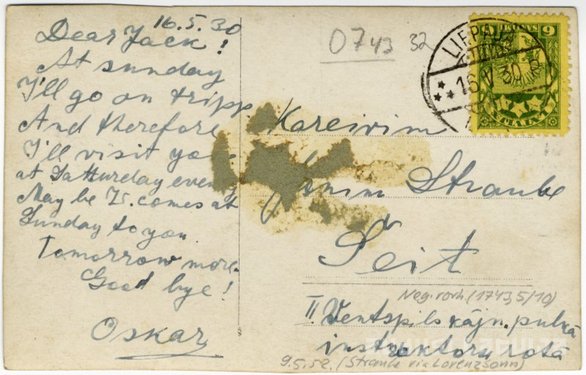 16.5.30
Dear Jack!
At sunday
I'll go on tripp
And therefore
I'll visit you
at Satturday evening
May be Js. comes at
Sunday to you
Tomorrow more.
Good bye!
Oskar
0743 32
LIEPĀJA
6
Kareivim
Jānim Straube
Šeit
Neg. (1743,5/10)
II Ventspils kājn. pulka
instruktoru rota
9.5.52. (Straube via Lorenzsonn)